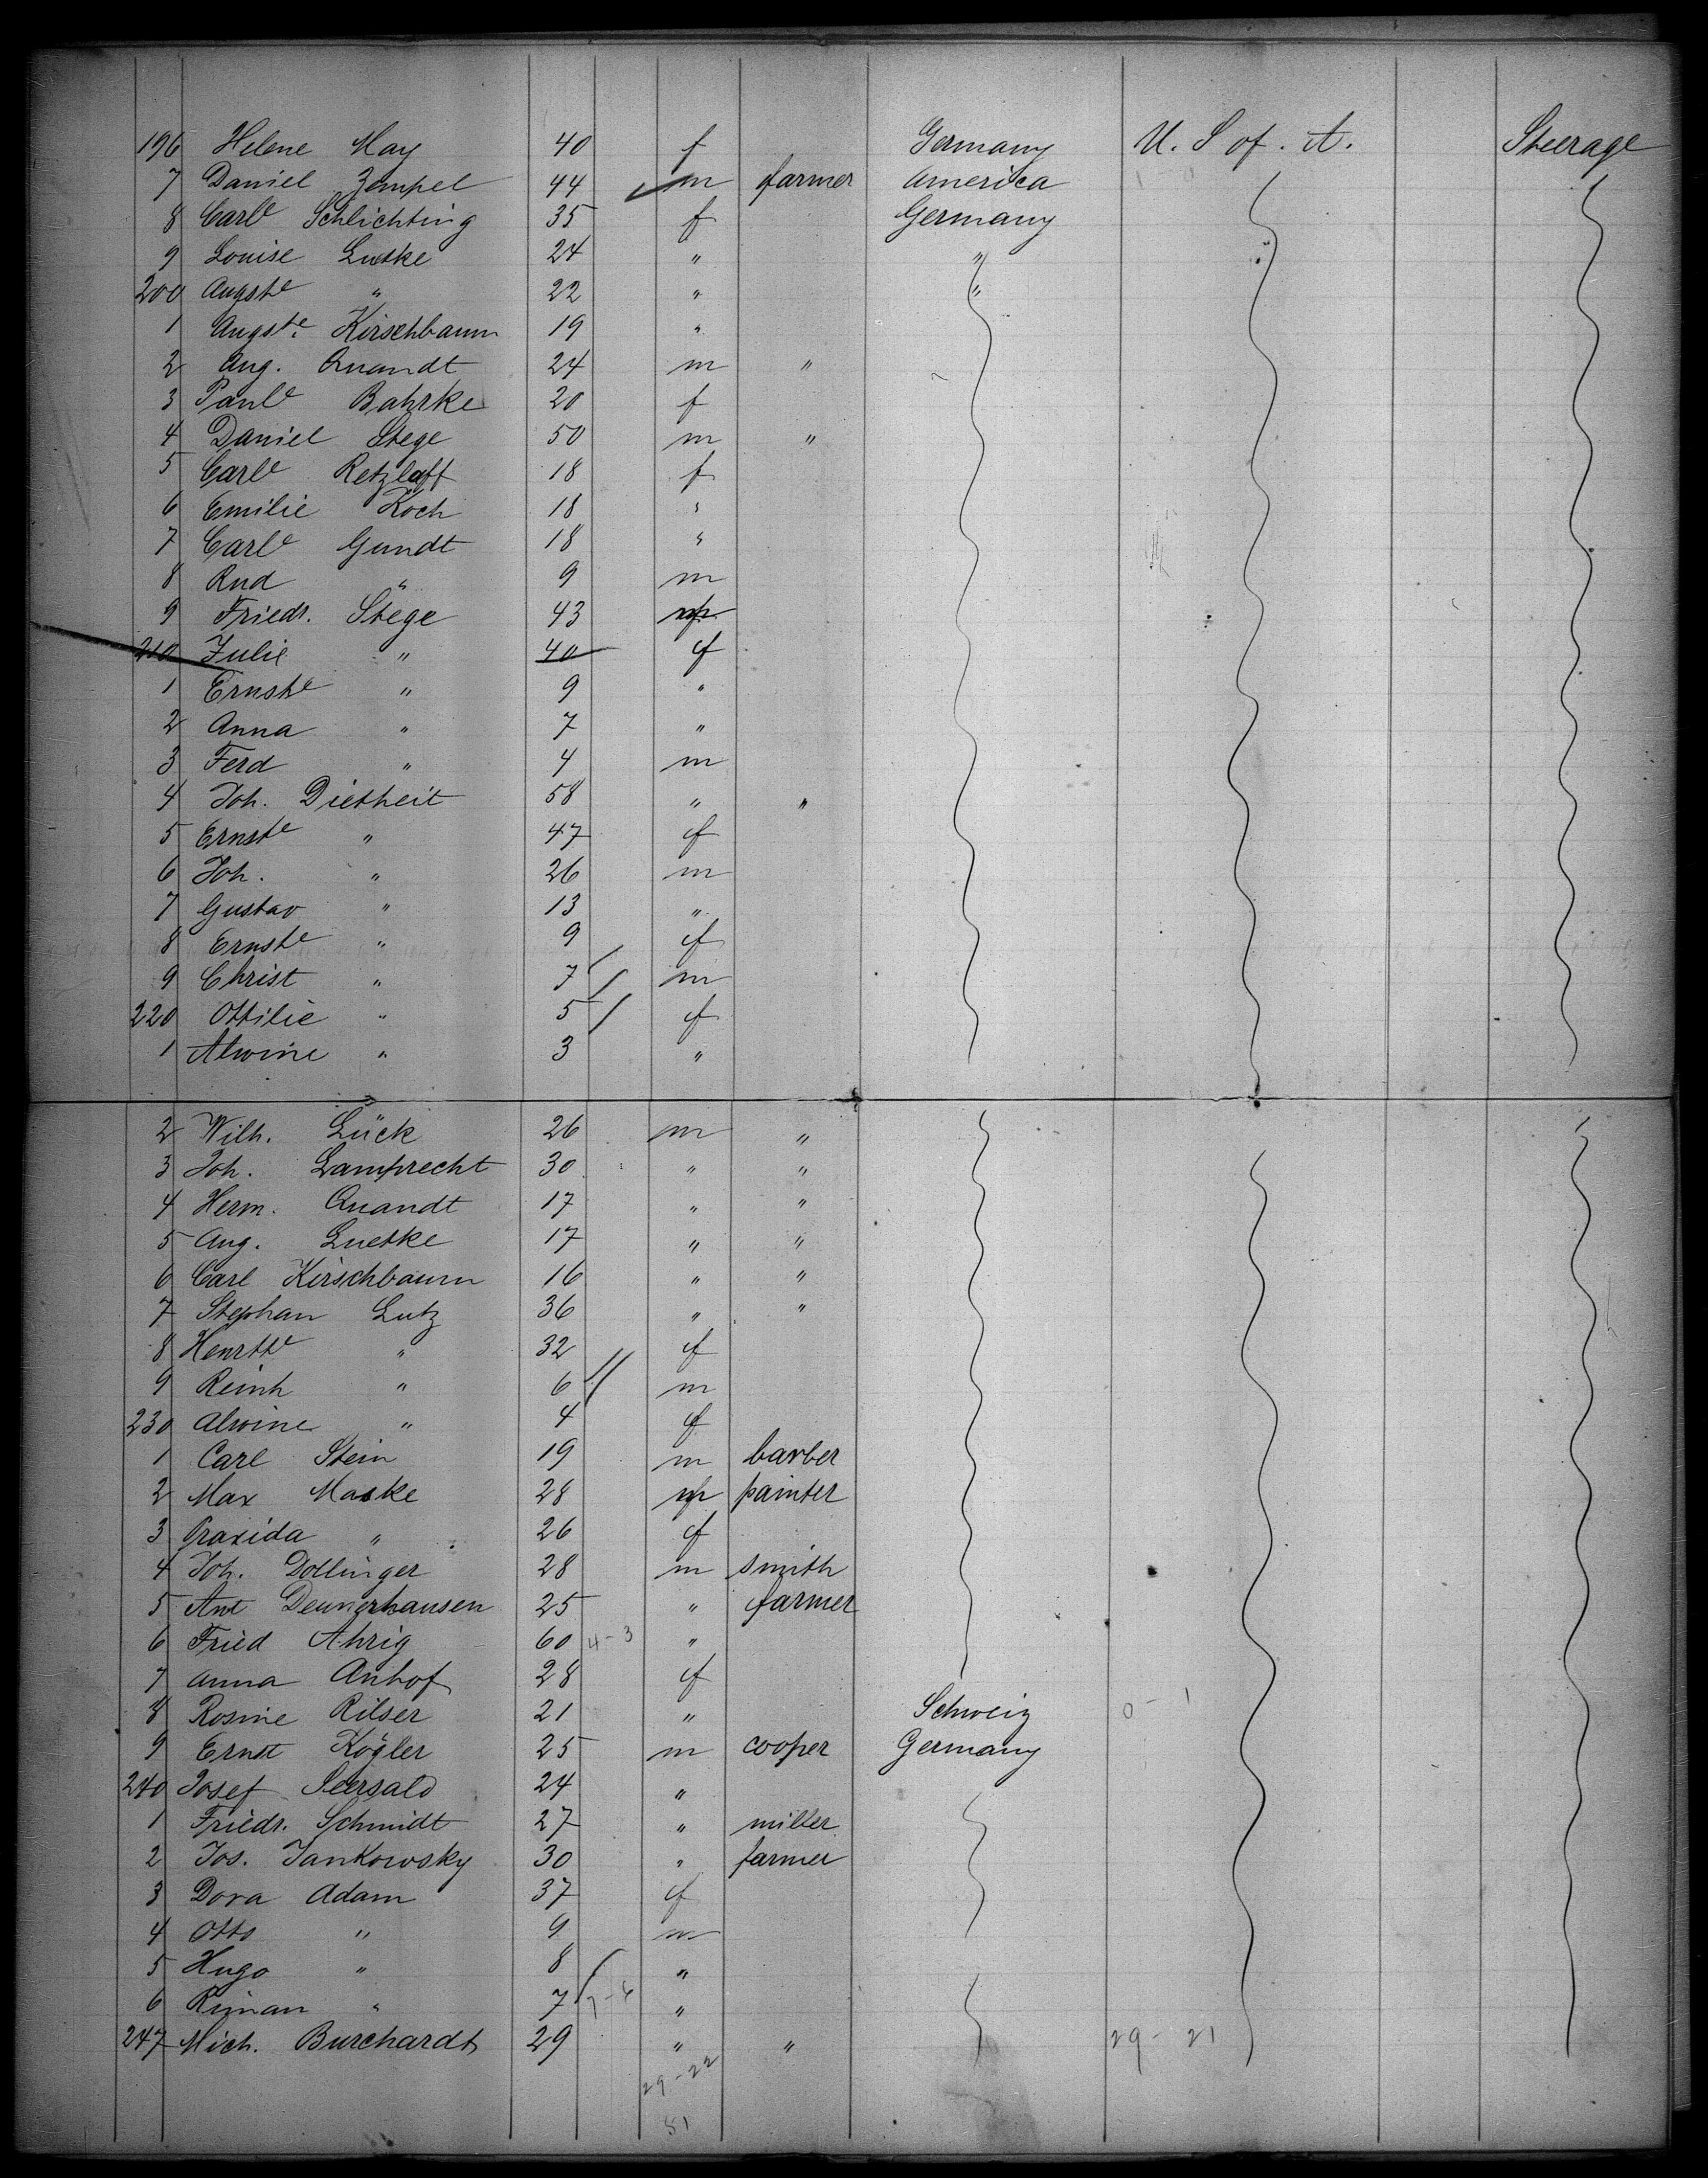 196 Helene May 40 f Germany U. S of. A. Steerage
7 Daniel Zempel 44 m farmer America
8 Carle Schlichting 35 f Germany
9 Louise Luetke 24 " "
200 Augste " 22 " "
1 Augste Kirschbaum 19 "
2 Aug. Quandt 24 m "
3 Paule Bahrke 20 f
4 Daniel Stege 50 m "
5 Carle Retzlaff 18 f
6 Emilie Koch 18 "
7 Carle Gundt 18 "
8 Rud " 9 m
9 Friedr. Stege 43 m
210 Julie " 40 f
1 Ernste " 9 "
2 Anna " 7 "
3 Ferd " 4 m
4 Joh. Dietheit 58 " "
5 Ernste " 47 f
6 Joh. " 26 m
7 Gustav " 13 "
8 Ernste " 9 f
9 Christ " 7 m
220 Ottilie " 5 f
1 Alwine " 3 "
2 Wilh. Lück 26 m "
3 Joh. Lamprecht 30 " "
4 Herm. Quandt 17 " "
5 Aug. Luetke 17 " "
6 Carl Kirschbaum 16 " "
7 Stephan Lutz 36 " "
8 Henrtte " 32 f
9 Reinh " 6 m
230 Alwine " 4 f
1 Carl Stein 19 m barber
2 Max Maske 28 m painter
3 Praxida " 26 f
4 Joh. Dollinger 28 m smith
5 Ant 25 " farmer
6 Fried Ahrig 60 4-3 "
7 Anna Anhof 28 f
8 Rosine Rilser 21 " Schweiz 0-1
9 Ernst Kögler 25 m cooper Germany
240 Josef Seersald 24 "
1 Friedr. Schmidt 27 " miller
2 Jos. Jankowsky 30 " farmer
3 Dora Adam 37 f
4 Otto " 9 m
5 Hugo " 8 "
6 Riman " 7 "
247 Mich. Burchardt 29 " " 29-21
29-22
51